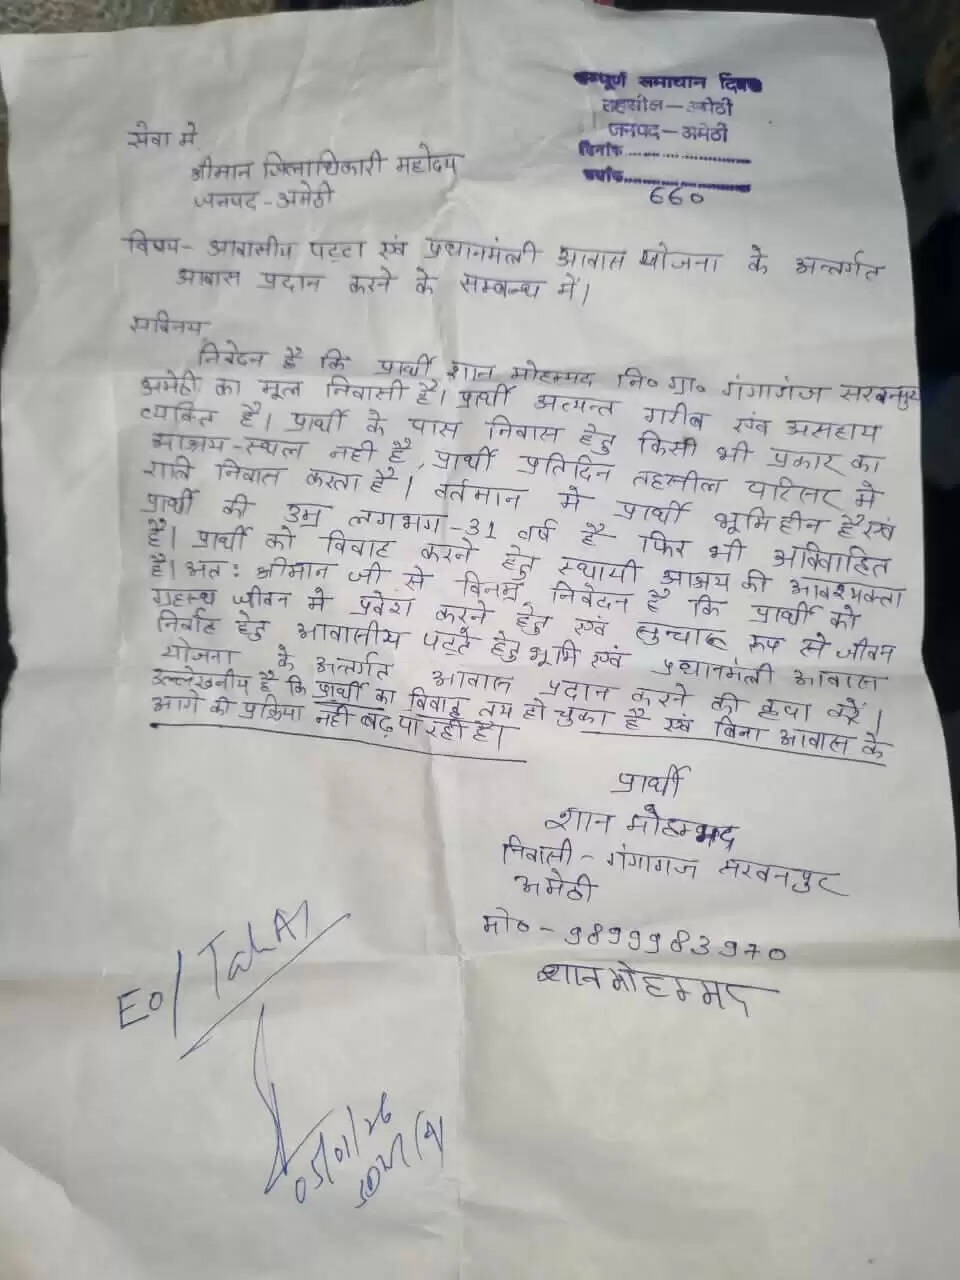 सम्पूर्ण समाधान दिवस
तहसील - अमेठी
जनपद - अमेठी
दिनांक
क्रमांक
660
सेवा में,
श्रीमान जिलाधिकारी महोदय
जनपद - अमेठी
विषय - आवासीय पट्टा एवं प्रधानमंत्री आवास योजना के अन्तर्गत
आवास प्रदान करने के सम्बन्ध में।
सविनय,
निवेदन है कि प्रार्थी शान मोहम्मद नि० ग्रा० गंगागंज सरवनपुर
अमेठी का मूल निवासी है। प्रार्थी अत्यन्त गरीब एवं असहाय
व्यक्ति है। प्रार्थी के पास निवास हेतु किसी भी प्रकार का
आश्रय-स्थल नही है, प्रार्थी प्रतिदिन तहसील परिसर मे
रात्रि निवास करता है। वर्तमान मे प्रार्थी भूमिहीन है एवं
प्रार्थी की उम्र लगभग - 31 वर्ष है फिर भी अविवाहित
है। प्रार्थी को विवाह करने हेतु स्थायी आश्रय की आवश्यकता
है। अत: श्रीमान जी से विनम्र निवेदन है कि प्रार्थी को
ग्रहस्थ जीवन मे प्रवेश करने हेतु एवं सुचारू रूप से जीवन
निर्वाह हेतु आवासीय पट्टे हेतु भूमि एवं प्रधानमंत्री आवास
योजना के अन्तर्गत आवास प्रदान करने की कृपा करें।
उल्लेखनीय है कि प्रार्थी का विवाह तय हो चुका है एवं बिना आवास के
आगे की प्रक्रिया नही बढ़ पा रही है।
प्रार्थी
शान मोहम्मद
निवासी - गंगागंज सरवनपुर
अमेठी
मो० - 9899983970
शान मोहम्मद
EO/
05/01/26